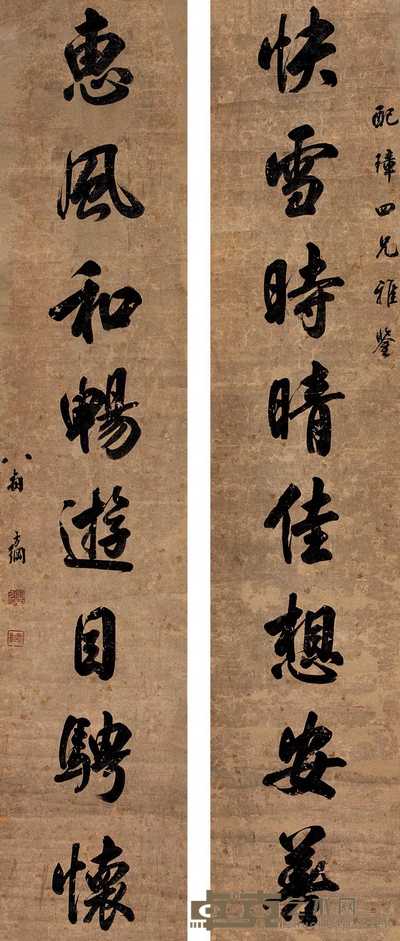 配璋四兄雅鑒
快雪時晴佳想安善
惠風和暢遊目騁懷
翁方綱